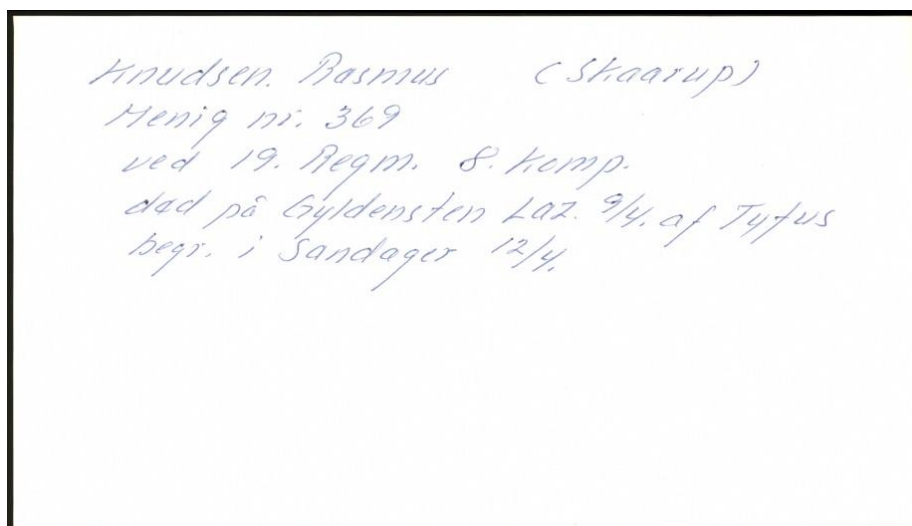 Knudsen. Rasmus (Skaarup)
Menig nr. 369
ved 19. Regm. 8. Komp.
død på Gyldensten Laz. 9/4. af Tyfus
begr. i Sandager 12/4.